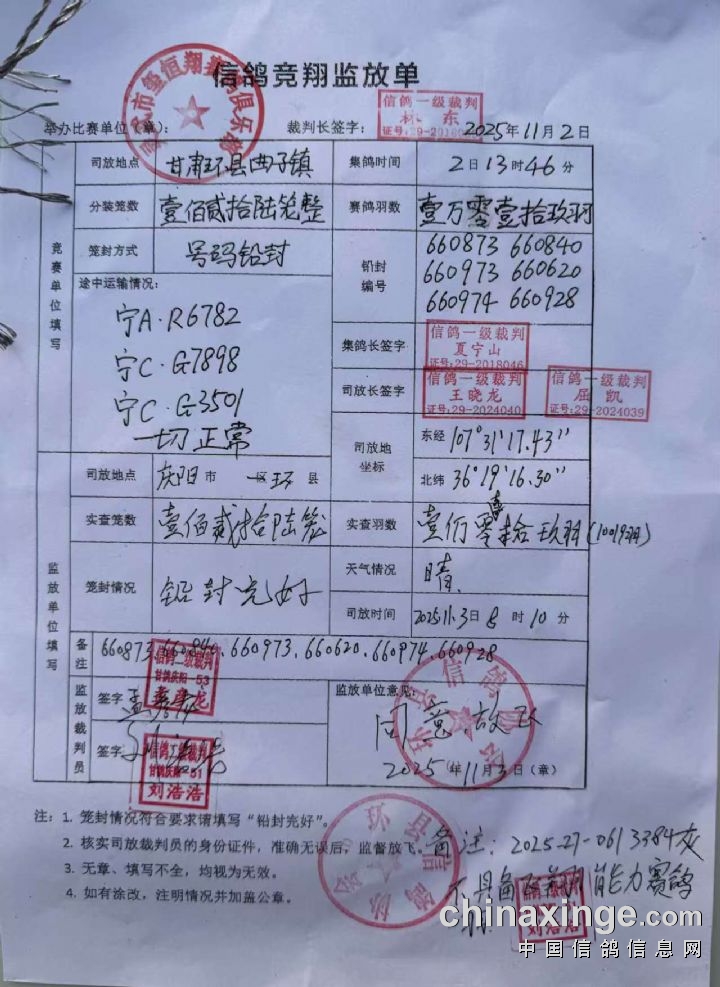 信鸽竞翔监放单
举办比赛单位（章）： 裁判长签字： 信鸽一级裁判 东 证号:29-2018 2025年11月2日
竞赛单位填写
司放地点 甘肃环县曲子镇 集鸽时间 2日13时46分
分装笼数 壹佰贰拾陆笼整 赛鸽羽数 壹万零壹拾玖羽
笼封方式 号码铅封 铅封编号 660873 660840
660973 660620
660974 660928
途中运输情况：
宁A·R6782
宁C·G7898
宁C·G3501
一切正常
集鸽长签字 信鸽一级裁判 夏宁山 证号:29-2018046
司放长签字 信鸽一级裁判 王晓龙 证号:29-2024040 信鸽一级裁判 屈凯 证号:29-2024039
司放地坐标 东经 107°31'17.43"
北纬 36°19'16.30"
监放单位填写
司放地点 庆阳市 区环县
实查笼数 壹佰贰拾陆笼 实查羽数 壹万零壹拾玖羽(10019羽)
笼封情况 铅封完好 天气情况 晴
司放时间 2025.11.3日8时10分
备注 660873.660840.660973.660620.660974.660928
监放裁判员 签字 信鸽一级裁判 甘鸽庆阳-53
签字 信鸽一级裁判 甘鸽庆阳-51 刘浩浩
监放单位意见：
同意放飞
2025年11月3日（章）
注：1. 笼封情况符合要求请填写“铅封完好”。
2. 核实司放裁判员的身份证件，准确无误后，监督放飞。
3. 无章、填写不全，均视为无效。
4. 如有涂改，注明情况并加盖公章。
备注：2025-27-0613384灰
不具备 能力赛鸽
刘浩浩
chinaxinge.com
中国信鸽信息网